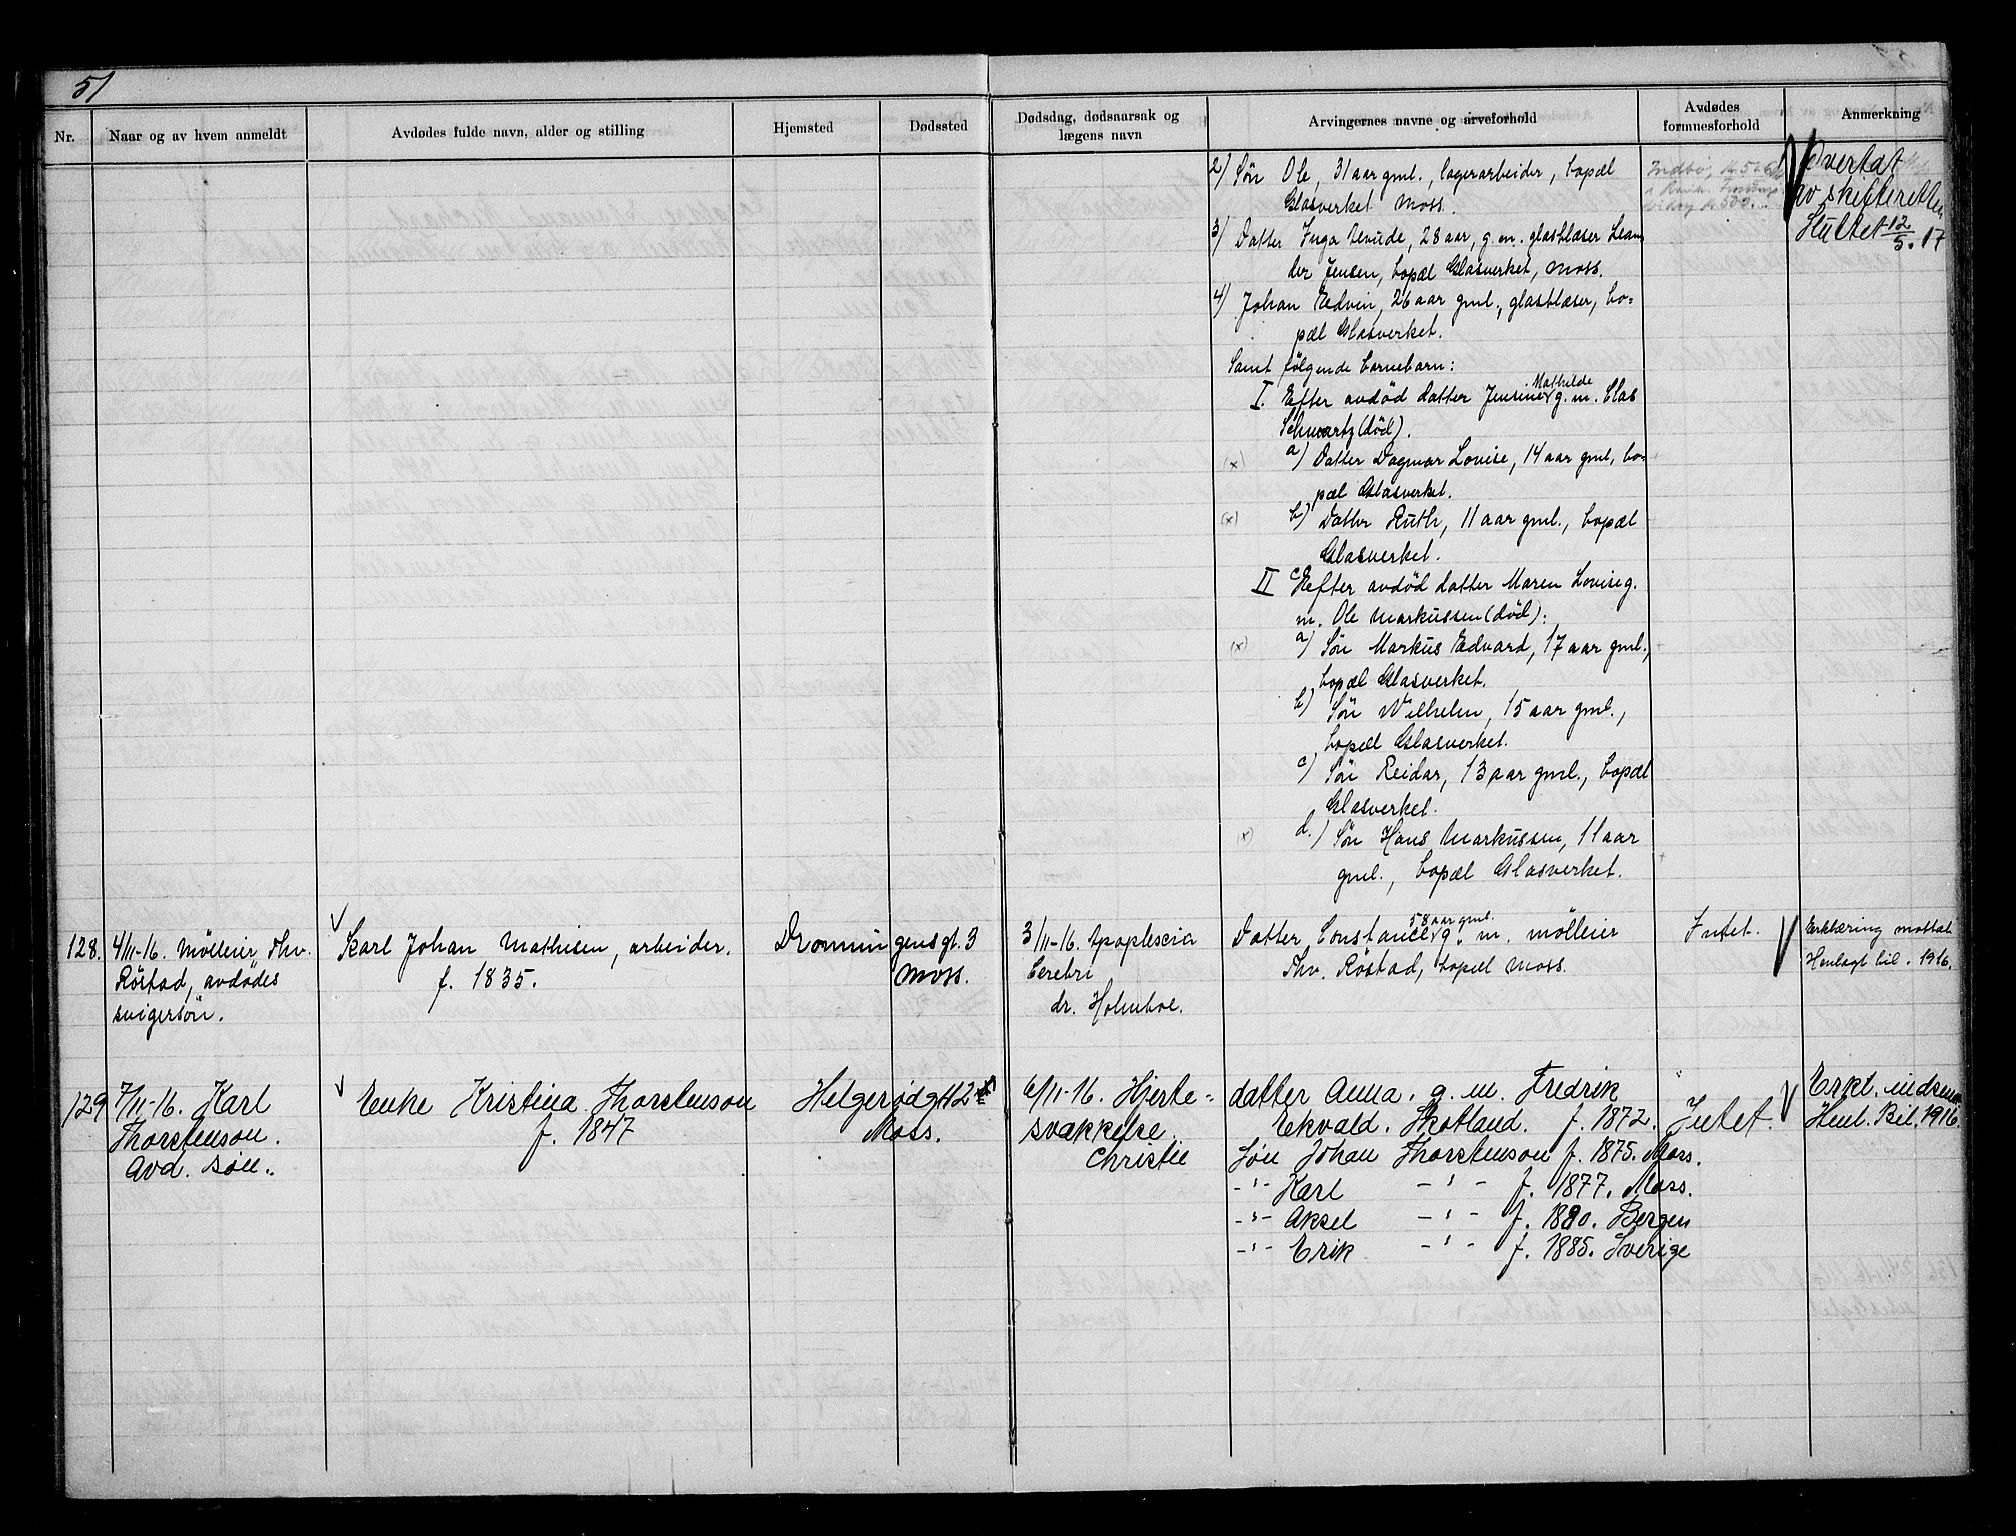 51
Nr.
Naar og av hvem anmeldt
Avdødes fulde navn, alder og stilling
Hjemsted
Dødssted
Dødsdag, dødsaarsak og
lægens navn
Arvingernes navne og arveforhold
Avdødes
formuesforhold
Anmerkning
2) Søn Ole, 31 aar gml., lagerarbeider, bopæl
Glasverket Moss.
3) Datter Inga 28 aar, g.m. glasblæser Lean-
der Jensen, bopæl Glasverket, Moss.
4) Johan Edvin, 26 aar gml., glasblæser, bo-
pæl Glasverket.
Samt følgende barnebarn:
I. Efter avdød datter Jensine Mathilde g.m. Clas
Schwartz (død).
(x) a) Datter Dagmar Lovise, 14 aar gml, bo-
pæl Glasverket.
(x) b) Datter Ruth, 11 aar gml., bopæl
Glasverket.
II Efter avdød datter Maren Lovise g.
m. Ole Markussen (død):
(x) a) Søn Markus Edvard, 17 aar gml.,
bopæl Glasverket.
b) Søn Wilhelm, 15 aar gml.,
bopæl Glasverket.
c) Søn Reidar, 13 aar gml., bopæl
Glasverket.
(x) d.) Søn Hans Markussen, 11 aar
gml., bopæl Glasverket.
Indbo,
Overtat
av skifteretten
Sluttet 12/5.17
128. 4/11-16. Mølleier Thv.
Røstad, avdødes
svigersøn.
Karl Johan Mathisen, arbeider.
f. 1835.
Dronningensgt. 3
Moss.
3/11-16. Apoplexia
Cerebri
dr. Holmboe.
Datter Constance 58 aar gml. g. m. mølleier
Thv. Røstad, bopæl Moss.
Intet.
Erklæring mottat
Henlagt bil. 1916.
129 7/11-16. Karl
Thorstenson.
Avd. søn.
Enke Kristina Thorstenson
f. 1847
Helgerødgt 42
Moss.
6/11-16. Hjerte-
svækkelse.
Christie
datter Anna. g. m. Fredrik
Ekvald. Skotland. f. 1872.
Søn Johan Thorstenson f. 1875. Moss.
-"- Karl -"- f. 1877. Moss.
-"- Aksel -"- f. 1880. Bergen
-"- Erik -"- f. 1885. Sverige
Intet.
Erkl. indsen
Henl. Bil. 1916.